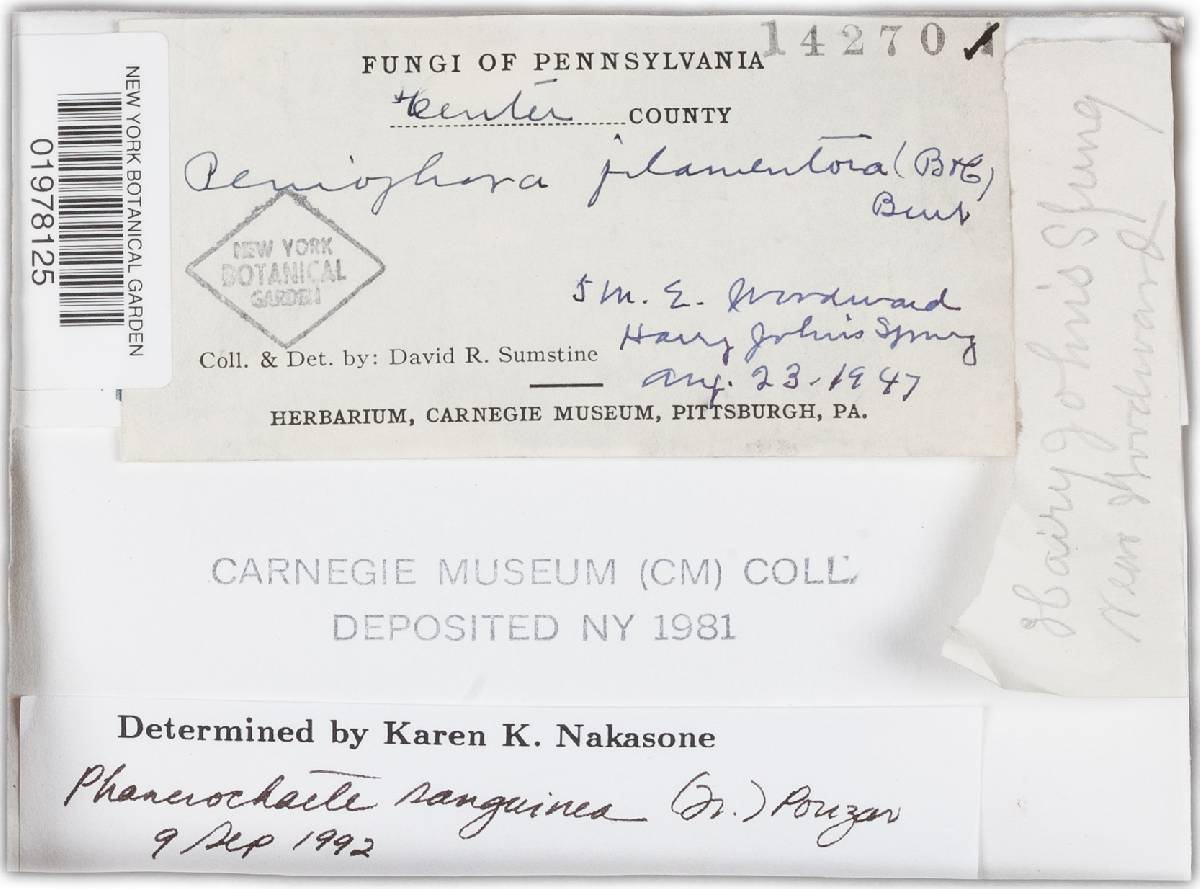 NEW YORK BOTANICAL GARDEN
01978125
14270
FUNGI OF PENNSYLVANIA
Center COUNTY
Peniophora filamentosa (B&C)
Burt
NEW YORK
BOTANICAL
GARDEN
5 M. E. Woodward
Harry Johns Spring
Coll. & Det. by: David R. Sumstine
Aug. 23-1947
HERBARIUM, CARNEGIE MUSEUM, PITTSBURGH, PA.
Harry Johns Spring
Near Woodward
CARNEGIE MUSEUM (CM) COLL.
DEPOSITED NY 1981
Determined by Karen K. Nakasone
Phanerochaete sanguinea (Fr.) Pouzar
9 Sep 1992